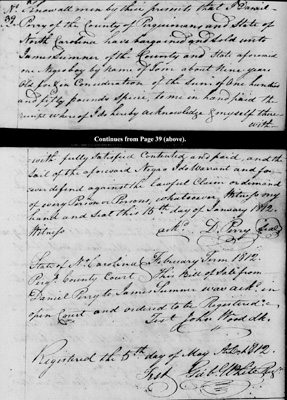 No. Know all men by these presents that I Daniel
39. Perry of the County of Perquimans and State of
North Carolina have bargained and sold unto
James Sumner of the County and State aforesaid
one Negro boy by Name of about Nine year
Old for in Consideration of the sum of One hundred
and fifty pounds Specie, to me in hand paid the
receipt whereof I do hereby acknowledge & myself there
with
Continues from Page 39 (above).
with fully Satisfied Contented and paid, and the
Sail of the aforesaid Negro I do Warant and for
ever defend against the Lawful Claim or demand
of every Person or Persons, whatsoever, Witness my
hand and Seal this 15th day of January 1812.
Witness ack.d D. Perry Seal
State of No. Carolina February Term 1812.
Perqs. County Court This Bill of Sale from
Daniel Perry to James Sumner was ack.d in
open Court and ordered to be Registered.
Test John Wood clk.
Registered the 5th day of May A.D. 1812.
Test White Regr.